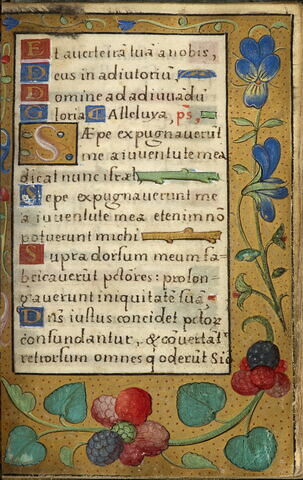 Et auerte irā tuā a nobis,
Deus in adiutoriū
Domine ad adiuuādū
Gloria Alleluya, ps,
Sæpe expugnauerūt
me a iuuentute mea
dicat nunc israł
Sepe expugnauerunt me
a iuuentute mea etenim nō
potuerunt michi
Supra dorsum meum fa-
bricauerūt pctōres: prolon
gauerunt iniquitatē suā
Dn̄s iustus concidet pctor̄
confundantur, & cōuertāt̄
retrorsum omnes q oderūt Sio